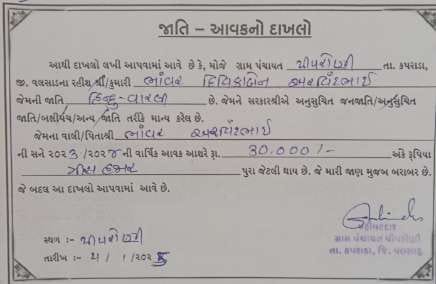 જાતિ – આવકનો દાખલો
આથી દાખલો લખી આપવામાં આવે છે કે, મોજે ગ્રામ પંચાયત પીપરોણી તા. કપરાડા,
જી. વલસાડના રહીશ શ્રી/કુમારી ભાંવર દિવિકાબેન અરવિંદભાઈ
જેમની જાતિ હિન્દુ-વારલી છે. જેમને સરકારશ્રીએ અનુસુચિત જનજાતિ/અનુસુચિત
જાતિ/બક્ષીપંચ/અન્ય જાતિ તરીકે માન્ય કરેલ છે.
જેમના વાલી/પિતાશ્રી ભાંવર અરવિંદભાઈ
ની સને ૨૦૨૩ /૨૦૨૪ ની વાર્ષિક આવક આશરે રૂા. 30.000 /- અંકે રૂપિયા
ત્રીસ હજાર પુરા જેટલી થાય છે. જે મારી જાણ મુજબ બરાબર છે.
જે બદલ આ દાખલો આપવામાં આવે છે.
સ્થળ :- પીપરોણી
તારીખ :- / /૨૦૨
ગ્રામ પંચાયત પીપરોણી
તા. કપરાડા, જિ. વલસાડ